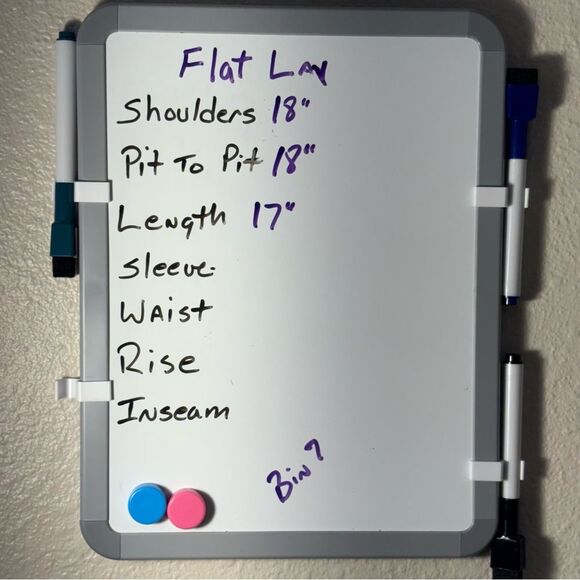 Flat Lay
Shoulders 18"
Pit To Pit 18"
Length 17"
Sleeve
Waist
Rise
Inseam
Bin 7